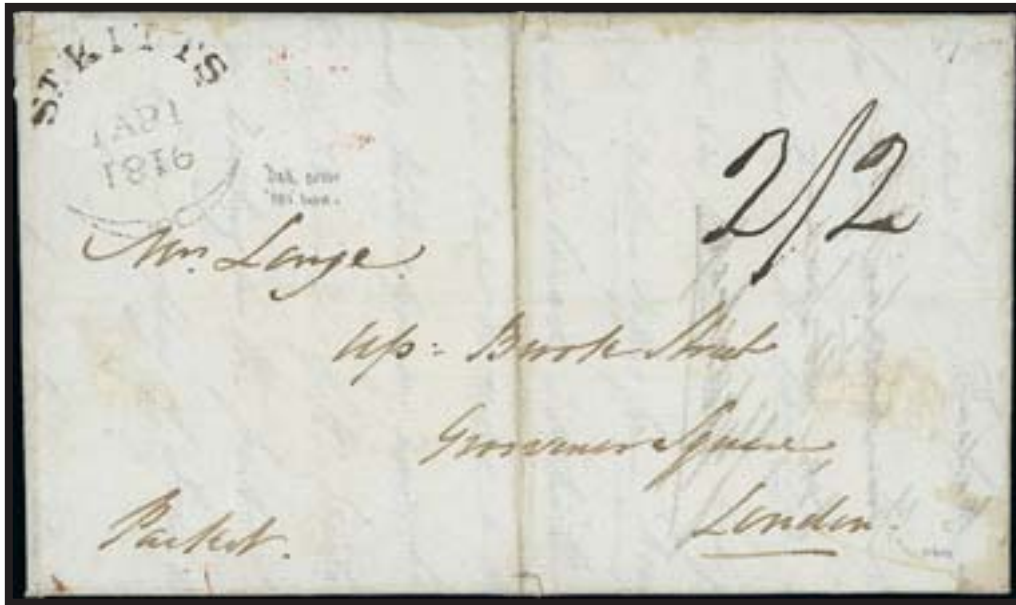 ST. KITTS
1 AP 1
1816
2/2
Mrs. Lange.
Up: Brook Street
Grosvenor Square
London.
Packet.